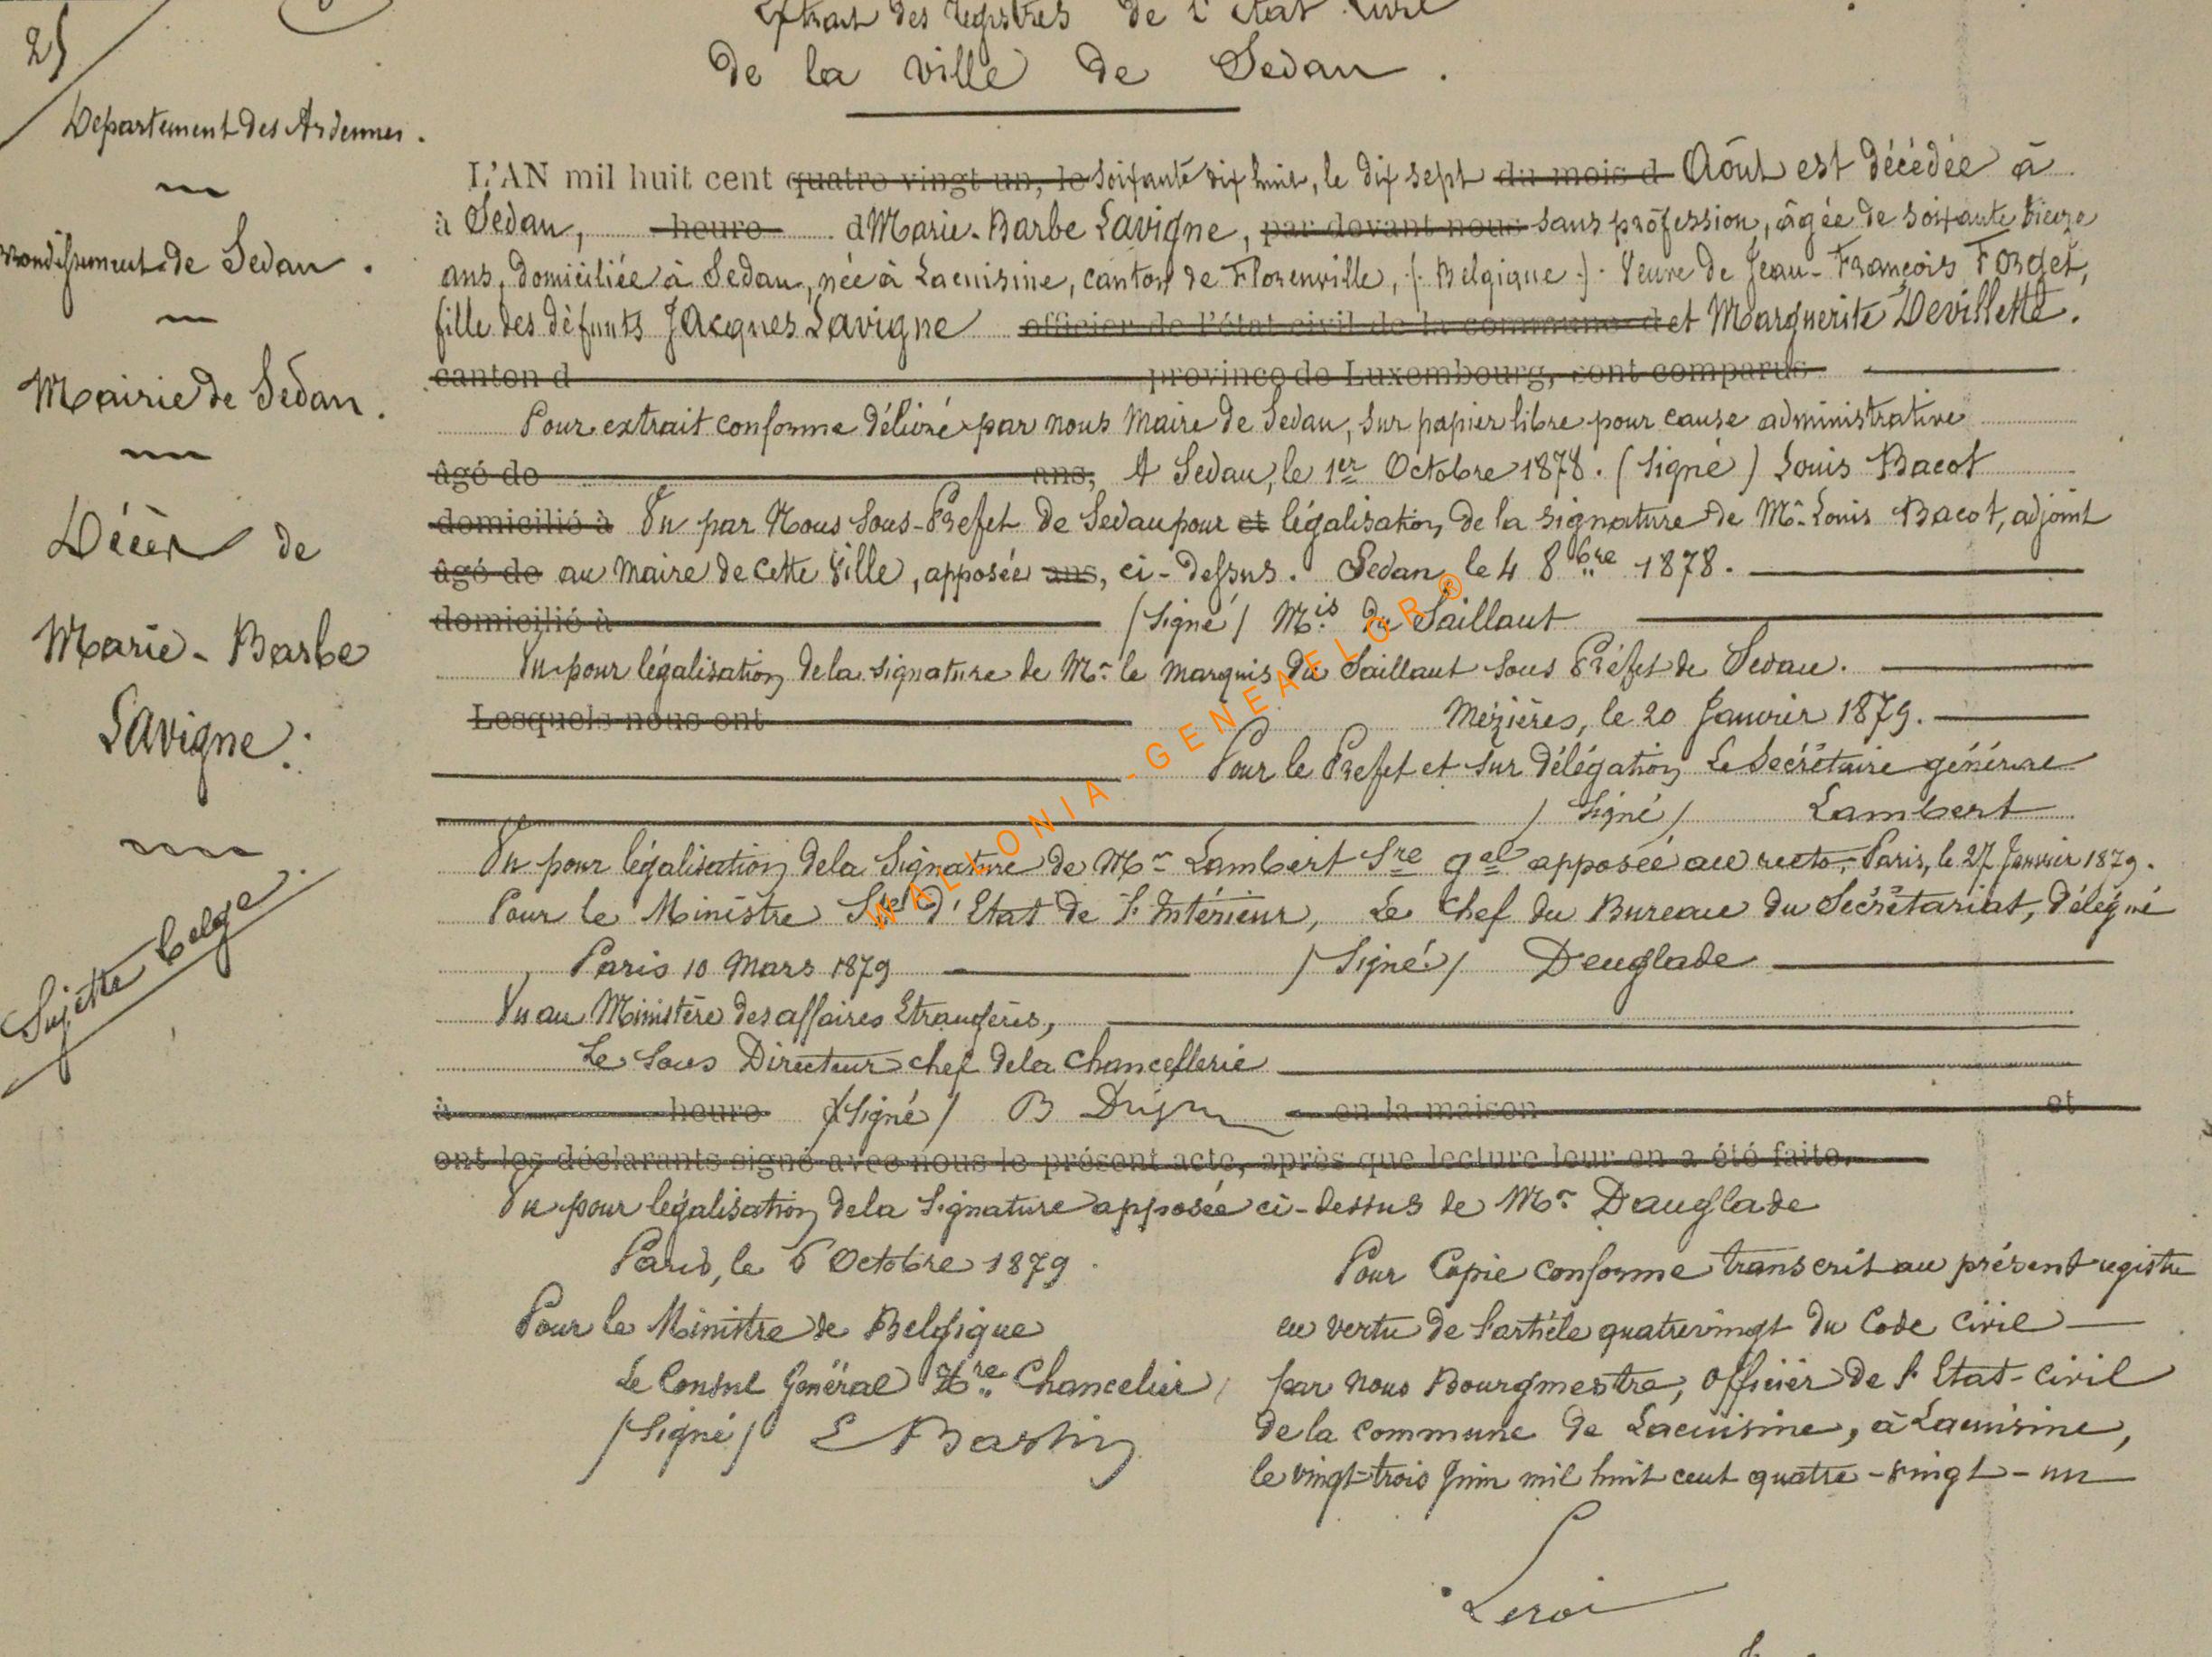 25
Departement des Ardennes.
Arrondissement de Sedan.
Mairie de Sedan.
Décès de
Marie-Barbe
Lavigne.
Sujette belge.
Extrait des registres de l'état civil
de la ville de Sedan.
L'AN mil huit cent quatre-vingt-un, le soixante dix huit, le dix sept du mois d Août est décédée à
à Sedan, heure d Marie-Barbe Lavigne, par devant nous sans profession, âgée de soixante treize
ans, domiciliée à Sedan, née à Lacuisine, canton de Florenville, (Belgique). Veuve de Jean-François Forget,
fille des défunts Jacques Lavigne officier de l'état civil de la commune d et Marguerite Devillette.
canton d province de Luxembourg, sont comparus
Pour extrait conforme délivré par nous Maire de Sedan, sur papier libre pour cause administrative
âgé de ans, A Sedan, le 1er Octobre 1878. (Signé) Louis Bacot
domicilié à Vu par Nous Sous-Préfet de Sedan pour et légalisation de la signature de Mr. Louis Bacot, adjoint
âgé de au Maire de cette Ville, apposée ans, ci-dessus. Sedan, le 4 8bre 1878.
domicilié à (Signé) Mis du Saillant
Vu pour légalisation de la signature de Mr le Marquis du Saillant Sous Préfet de Sedan.
Lesquels nous ont Mézières, le 20 Janvier 1879.
Pour le Préfet et sur délégation Le Secrétaire général
(Signé) Lambert
Vu pour légalisation de la Signature de Mr Lambert Sre gal apposée au recto, Paris, le 27 Janvier 1879.
Pour le Ministre Sre d'Etat de l'Intérieur, Le Chef du Bureau du Secrétariat, délégué
Paris 10 Mars 1879 (Signé) Deuglade
Vu au Ministère des affaires Etrangères,
Le Sous Directeur chef de la Chancellerie
à heure (Signé) B en la maison et
ont les déclarants signé avec nous le présent acte, après que lecture leur en a été faite.
Vu pour légalisation de la Signature apposée ci-dessus de Mr Dauglade
Paris, le 6 Octobre 1879.
Pour le Ministre de Belgique
Le Consul Général Hre Chancelier
(Signé) E Bastin
Pour Copie conforme transcrit au présent registre
en vertu de l'article quatrevingt du Code Civil
par nous Bourgmestre, Officier de l'Etat-Civil
de la commune de Lacuisine, à Lacuisine,
le vingt-trois Juin mil huit cent quatre-vingt-un
Leroi
WALLONIA-GENEAELOR®